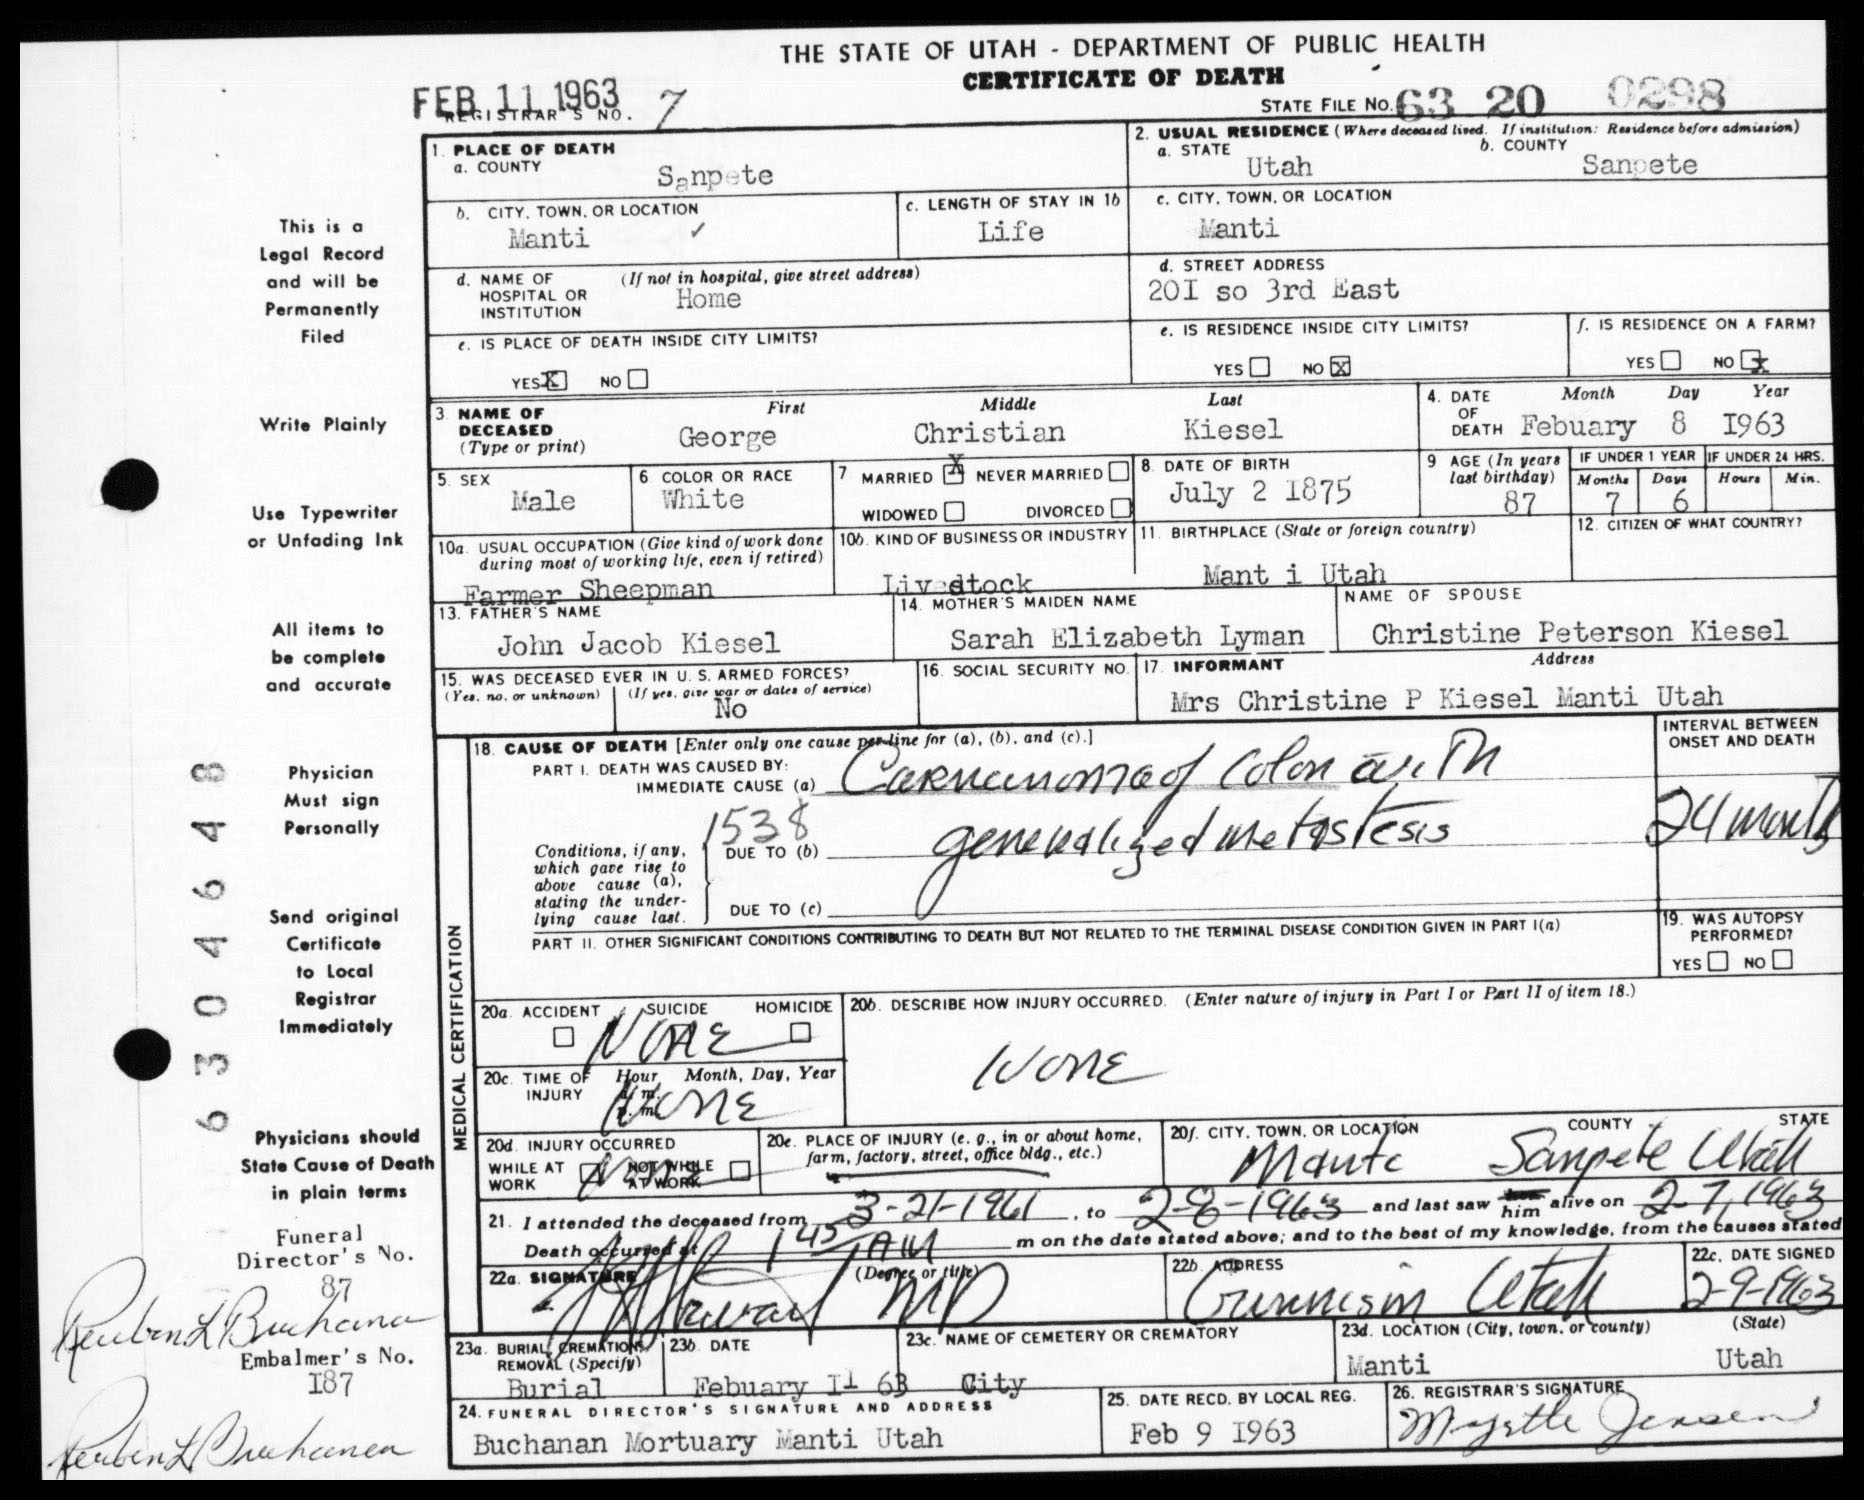 THE STATE OF UTAH - DEPARTMENT OF PUBLIC HEALTH
CERTIFICATE OF DEATH
FEB 11 1963
REGISTRAR'S NO. 7
STATE FILE NO. 63 20 0298
1. PLACE OF DEATH
a. COUNTY
Sanpete
2. USUAL RESIDENCE (Where deceased lived. If institution: Residence before admission)
a. STATE
Utah
b. COUNTY
Sanpete
b. CITY, TOWN, OR LOCATION
Manti ✓
c. LENGTH OF STAY IN 1b
Life
c. CITY, TOWN, OR LOCATION
Manti
d. NAME OF HOSPITAL OR INSTITUTION
(If not in hospital, give street address)
Home
d. STREET ADDRESS
20I so 3rd East
e. IS PLACE OF DEATH INSIDE CITY LIMITS?
YES X NO
e. IS RESIDENCE INSIDE CITY LIMITS?
YES NO X
f. IS RESIDENCE ON A FARM?
YES NO X
3. NAME OF DECEASED
(Type or print)
First Middle Last
George Christian Kiesel
4. DATE OF DEATH
Month Day Year
Febuary 8 I963
5. SEX
Male
6 COLOR OR RACE
White
7 MARRIED X NEVER MARRIED
WIDOWED DIVORCED
8. DATE OF BIRTH
July 2 I875
9 AGE (In years last birthday)
87
IF UNDER 1 YEAR
Months Days
7 6
IF UNDER 24 HRS.
Hours Min.
10a. USUAL OCCUPATION (Give kind of work done during most of working life, even if retired)
Farmer Sheepman
10b. KIND OF BUSINESS OR INDUSTRY
Livestock
11. BIRTHPLACE (State or foreign country)
Mant i Utah
12. CITIZEN OF WHAT COUNTRY?
13. FATHER'S NAME
John Jacob Kiesel
14. MOTHER'S MAIDEN NAME
Sarah Elizabeth Lyman
NAME OF SPOUSE
Christine Peterson Kiesel
15. WAS DECEASED EVER IN U. S. ARMED FORCES?
(Yes, no, or unknown) (If yes, give war or dates of service)
No
16. SOCIAL SECURITY NO.
17. INFORMANT Address
Mrs Christine P Kiesel Manti Utah
MEDICAL CERTIFICATION
18. CAUSE OF DEATH [Enter only one cause per line for (a), (b), and (c).]
INTERVAL BETWEEN ONSET AND DEATH
PART I. DEATH WAS CAUSED BY:
IMMEDIATE CAUSE (a) of Colon with
1538
Conditions, if any, which gave rise to above cause (a), stating the underlying cause last.
DUE TO (b) generalized metastesis
24 months
DUE TO (c)
PART II. OTHER SIGNIFICANT CONDITIONS CONTRIBUTING TO DEATH BUT NOT RELATED TO THE TERMINAL DISEASE CONDITION GIVEN IN PART I(a)
19. WAS AUTOPSY PERFORMED?
YES NO
20a. ACCIDENT SUICIDE HOMICIDE
NONE
20b. DESCRIBE HOW INJURY OCCURRED. (Enter nature of injury in Part I or Part II of item 18.)
NONE
20c. TIME OF INJURY
Hour Month, Day, Year
a. m.
p. m.
NONE
20d. INJURY OCCURRED
WHILE AT WORK NOT WHILE AT WORK
None
20e. PLACE OF INJURY (e. g., in or about home, farm, factory, street, office bldg., etc.)
20f. CITY, TOWN, OR LOCATION COUNTY STATE
Manti Sanpete Utah
21. I attended the deceased from 3-21-1961, to 2-8-1963 and last saw her him alive on 2-7, 1963
Death occurred at 1 45 AM m on the date stated above; and to the best of my knowledge, from the causes stated
22a. SIGNATURE (Degree or title)
MD
22b. ADDRESS
Gunnison Utah
22c. DATE SIGNED
2-9-1963
23a. BURIAL, CREMATION, REMOVAL (Specify)
Burial
23b. DATE
Febuary I1 63
23c. NAME OF CEMETERY OR CREMATORY
City
23d. LOCATION (City, town, or county) (State)
Manti Utah
24. FUNERAL DIRECTOR'S SIGNATURE AND ADDRESS
Buchanan Mortuary Manti Utah
25. DATE RECD. BY LOCAL REG.
Feb 9 I963
26. REGISTRAR'S SIGNATURE
Myrtle Jensen
This is a
Legal Record
and will be
Permanently
Filed
Write Plainly
Use Typewriter
or Unfading Ink
All items to
be complete
and accurate
Physician
Must sign
Personally
Send original
Certificate
to Local
Registrar
Immediately
Physicians should
State Cause of Death
in plain terms
630464 8
Funeral
Director's No.
87
Reuben L Buchanan
Embalmer's No.
I87
Reuben L Buchanan